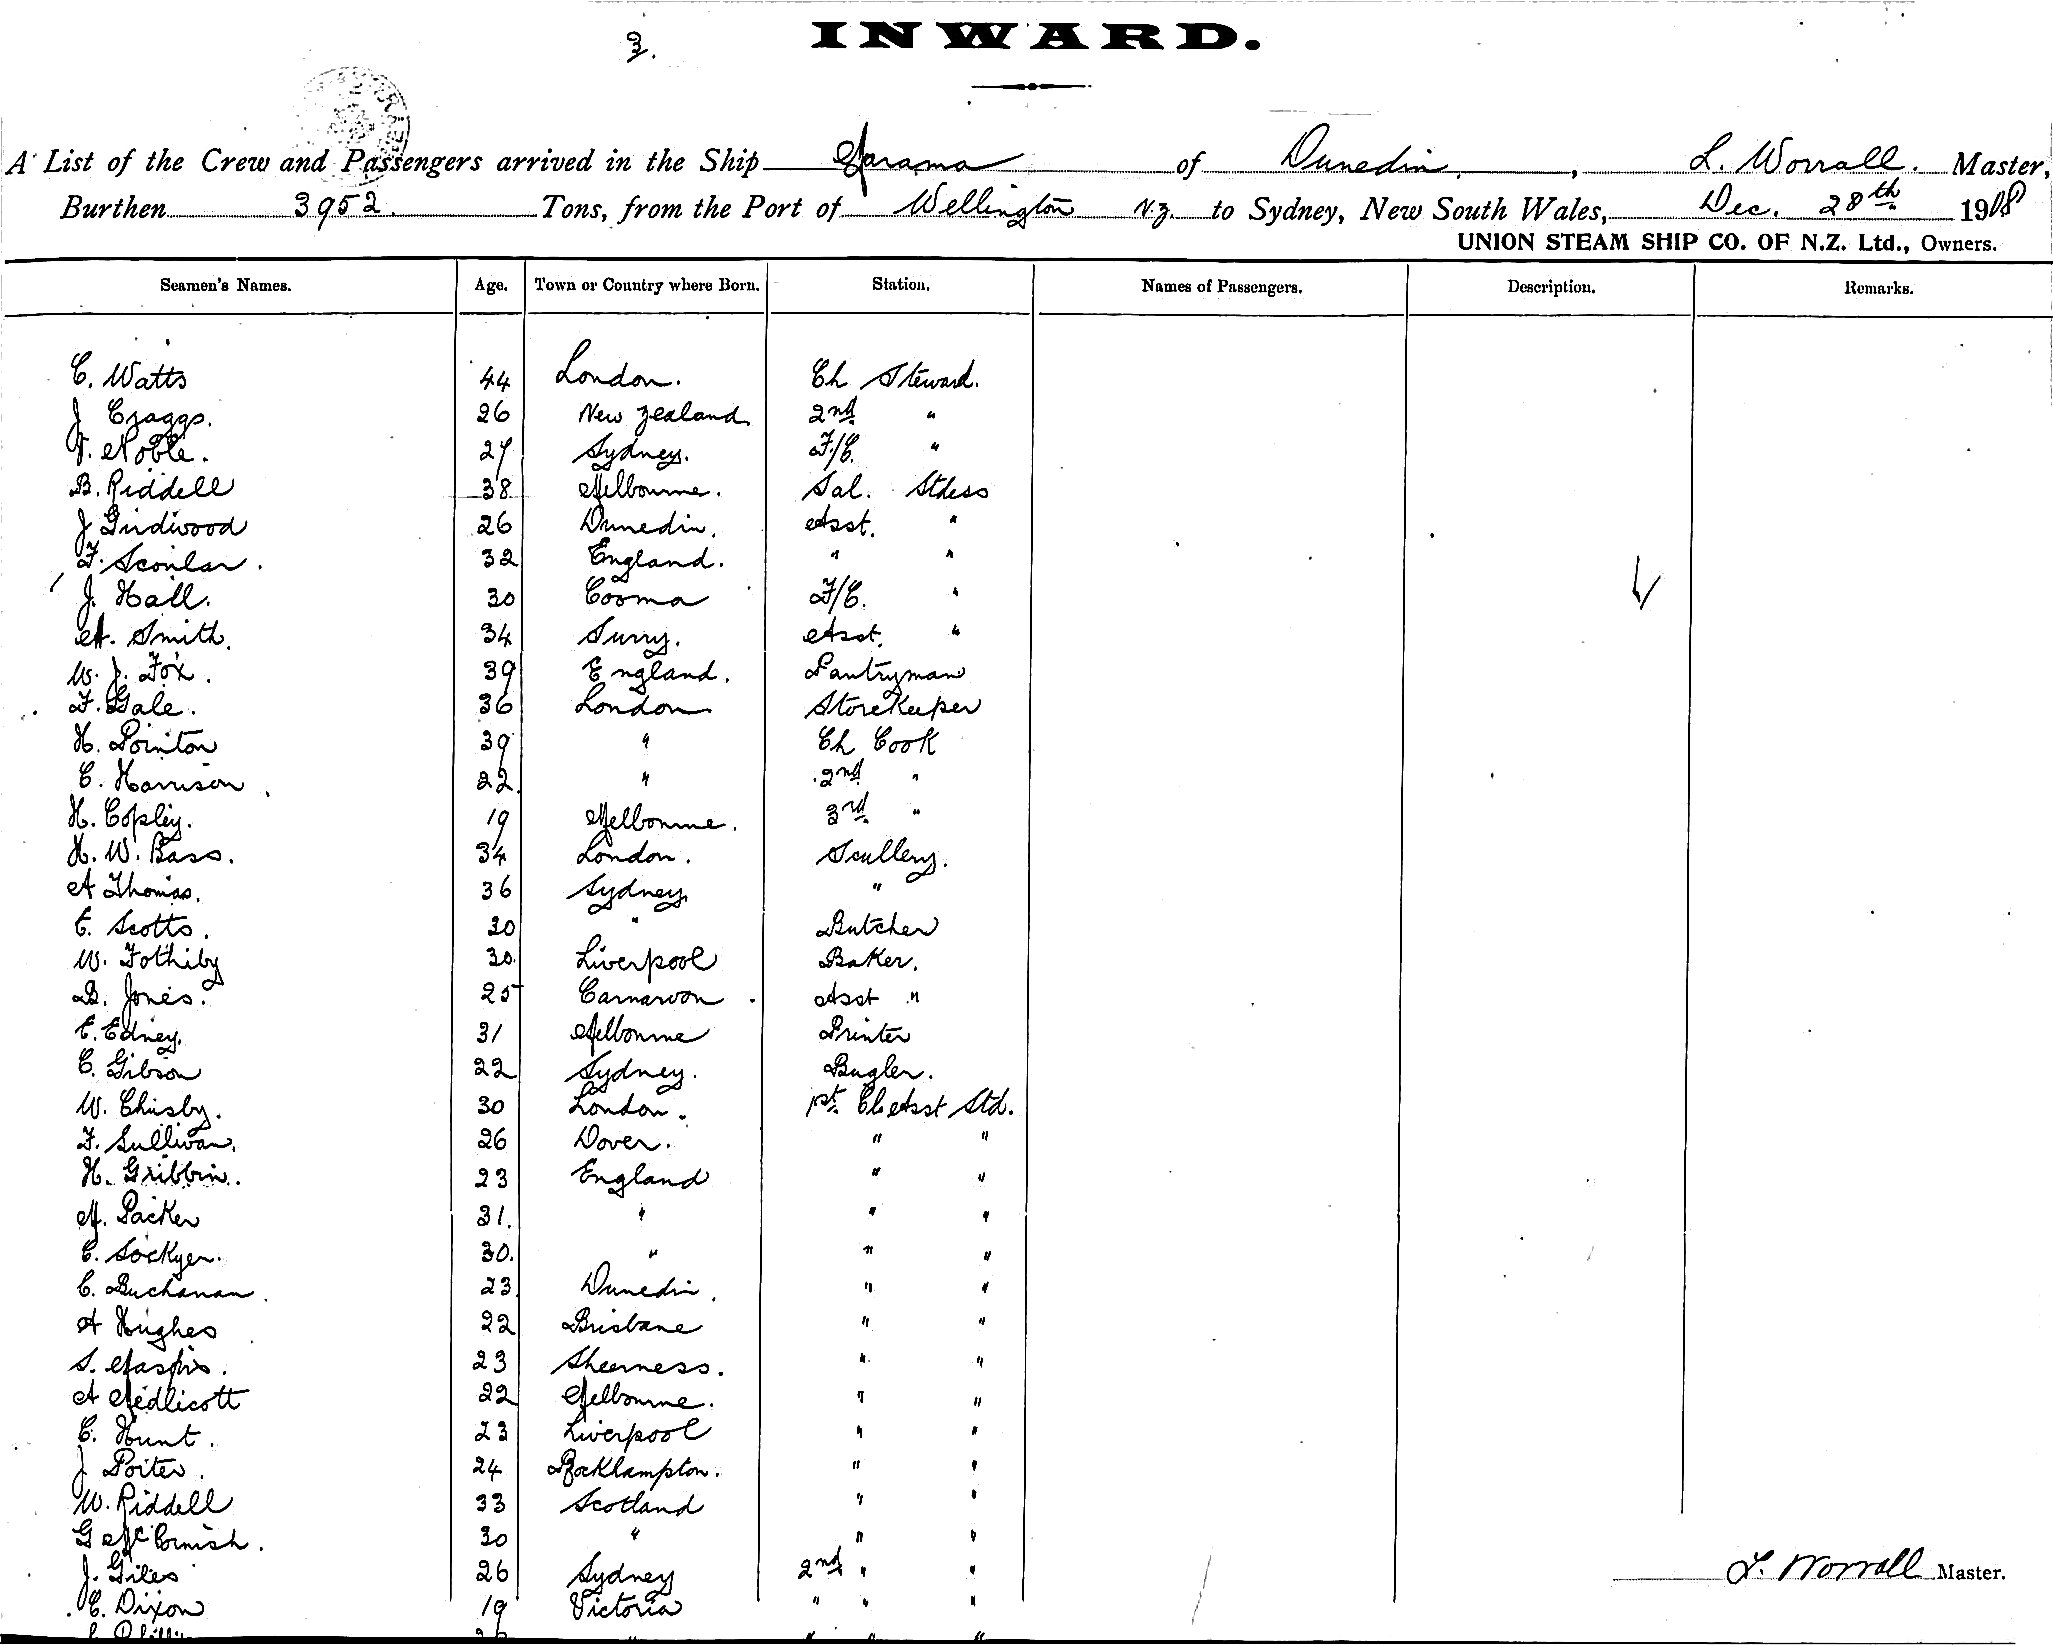 3.
INWARD.
A List of the Crew and Passengers arrived in the Ship Marama of Dunedin, L. Worrall. Master,
Burthen 3952. Tons, from the Port of Wellington N.Z. to Sydney, New South Wales, Dec. 28th 1908
UNION STEAM SHIP CO. OF N.Z. Ltd., Owners.
Seamen's Names. Age. Town or Country where Born. Station. Names of Passengers. Description. Remarks.
C. Watts 44 London. Ch Steward.
J Craggs. 26 New Zealand 2nd "
Noble. 27 Sydney. F/C. "
B. Riddell 38 Melbourne. Sal. Stdess
J Girdwood 26 Dunedin. Asst. "
F. 32 England. " "
J. Hall. 30 Cooma F/C. "
A. Smith. 34 Surry. Asst. "
W. J. Fox. 39 England. Pantryman
F. Gale. 36 London Storekeeper
H. Pointon 39 " Ch Cook
C. Harrison 22 " 2nd "
H. Copley. 19 Melbourne. 3rd "
H. W. Bass. 34 London. Scullery.
A Thomas. 36 Sydney "
Scotts. 30 " Butcher
W. 30 Liverpool Baker.
B. Jones. 25 Carnarvon. Asst "
E. Edney. 31 Melbourne Printer
C. Gibson 22 Sydney. Bugler.
W. 30 London. 1st Cl Asst Std.
F. Sullivan. 26 Dover. " "
H. Gribbin. 23 England " "
M. Packer 31. " " "
C. Sockyer. 30. " " "
C. Buchanan. 23 Dunedin. " "
A Hughes 22 Brisbane " "
S. 23 Sheerness. " "
A Medlicott 22 Melbourne. " "
C. Hunt. 23 Liverpool " "
J Porter. 24 Rocklampton. " "
W. Riddell 33 Scotland " "
G McCornish. 30 " " "
J. Giles 26 Sydney 2nd " "
C. Dixon 19 Victoria " " "
L. Worrall Master.